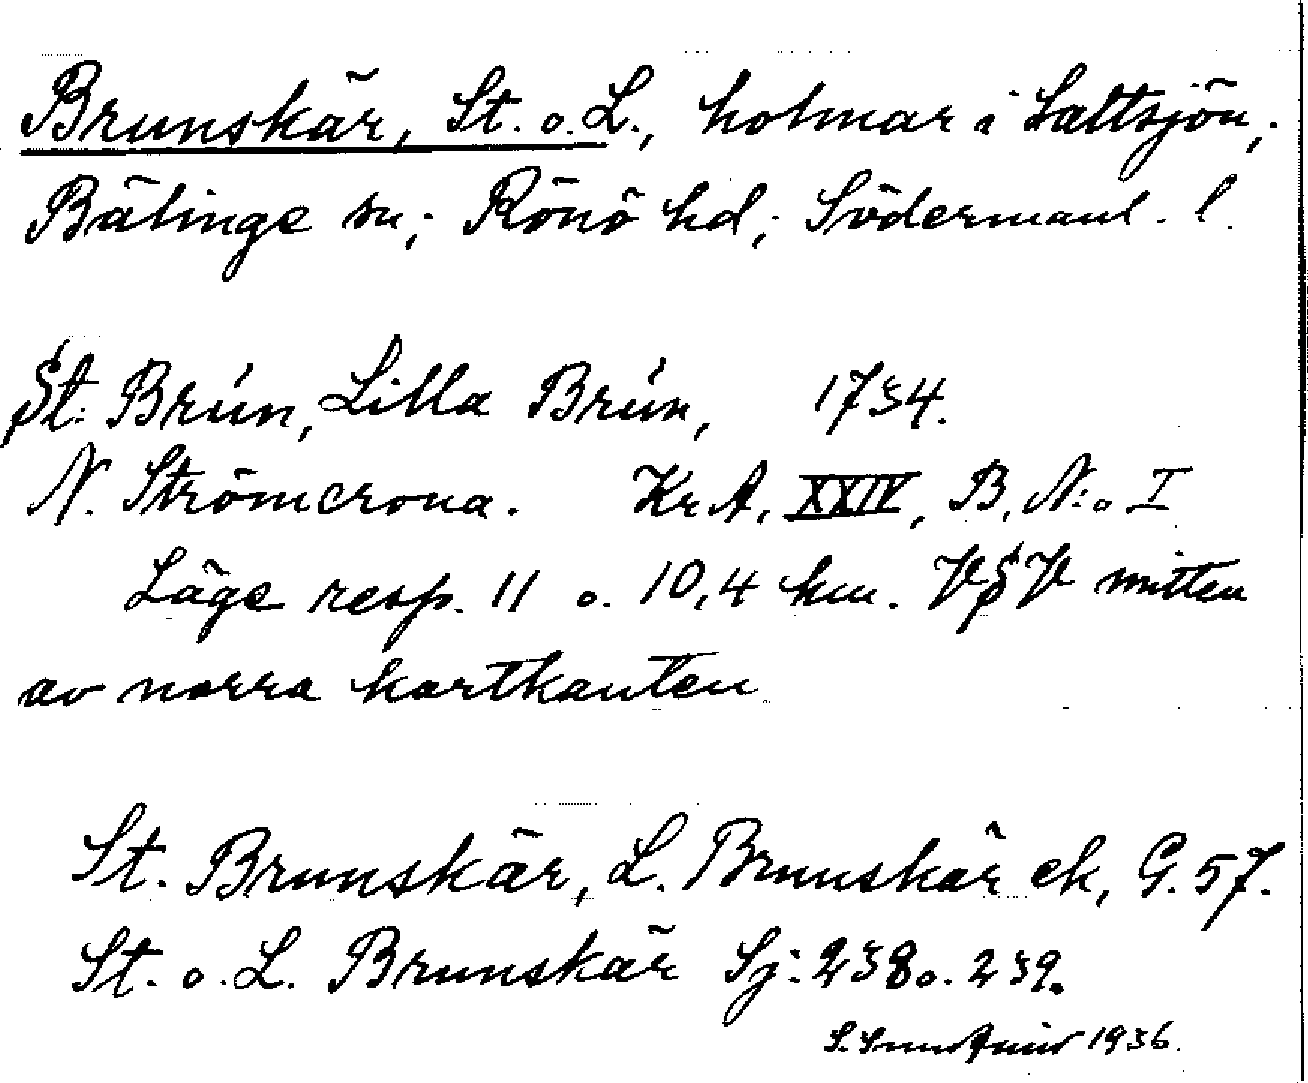 Brunskär, St. o. L., holmar i Saltsjön,
Bälinge sn; Rönö hd; Södermanl. l.
St. Brún, Lilla Brún, 1734.
N. Strömcrona. Kr. A, XXIV, B, N:o I
Läge resp. 11 o. 10,4 km. VSV mitten
av norra kartkanten.
St. Brunskär, L. Brunskär ek, G. 57.
St. o. L. Brunskär Sj: 238 o. 239.
1936.